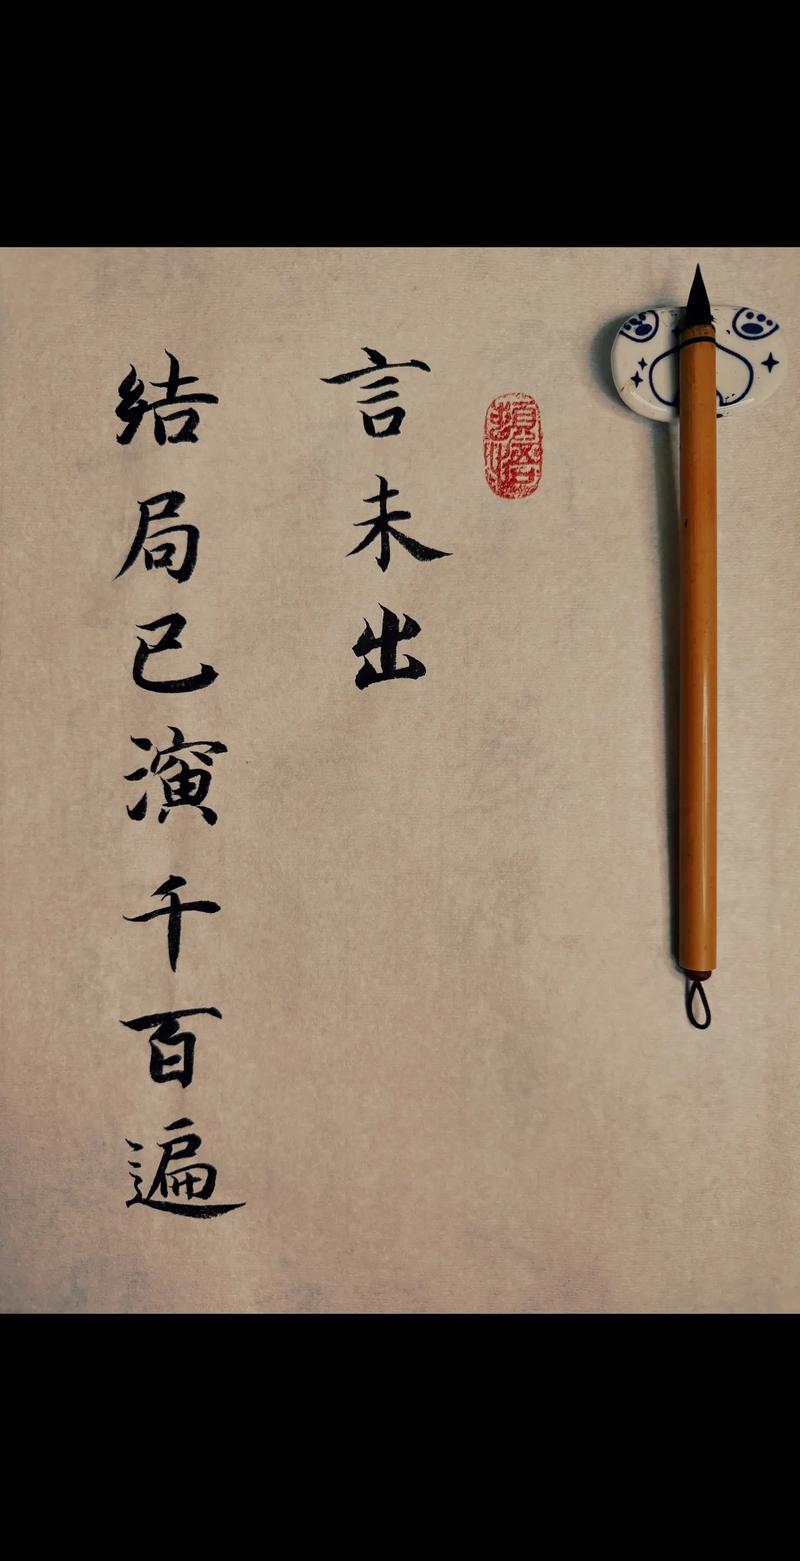 言未出
结局已演千百遍